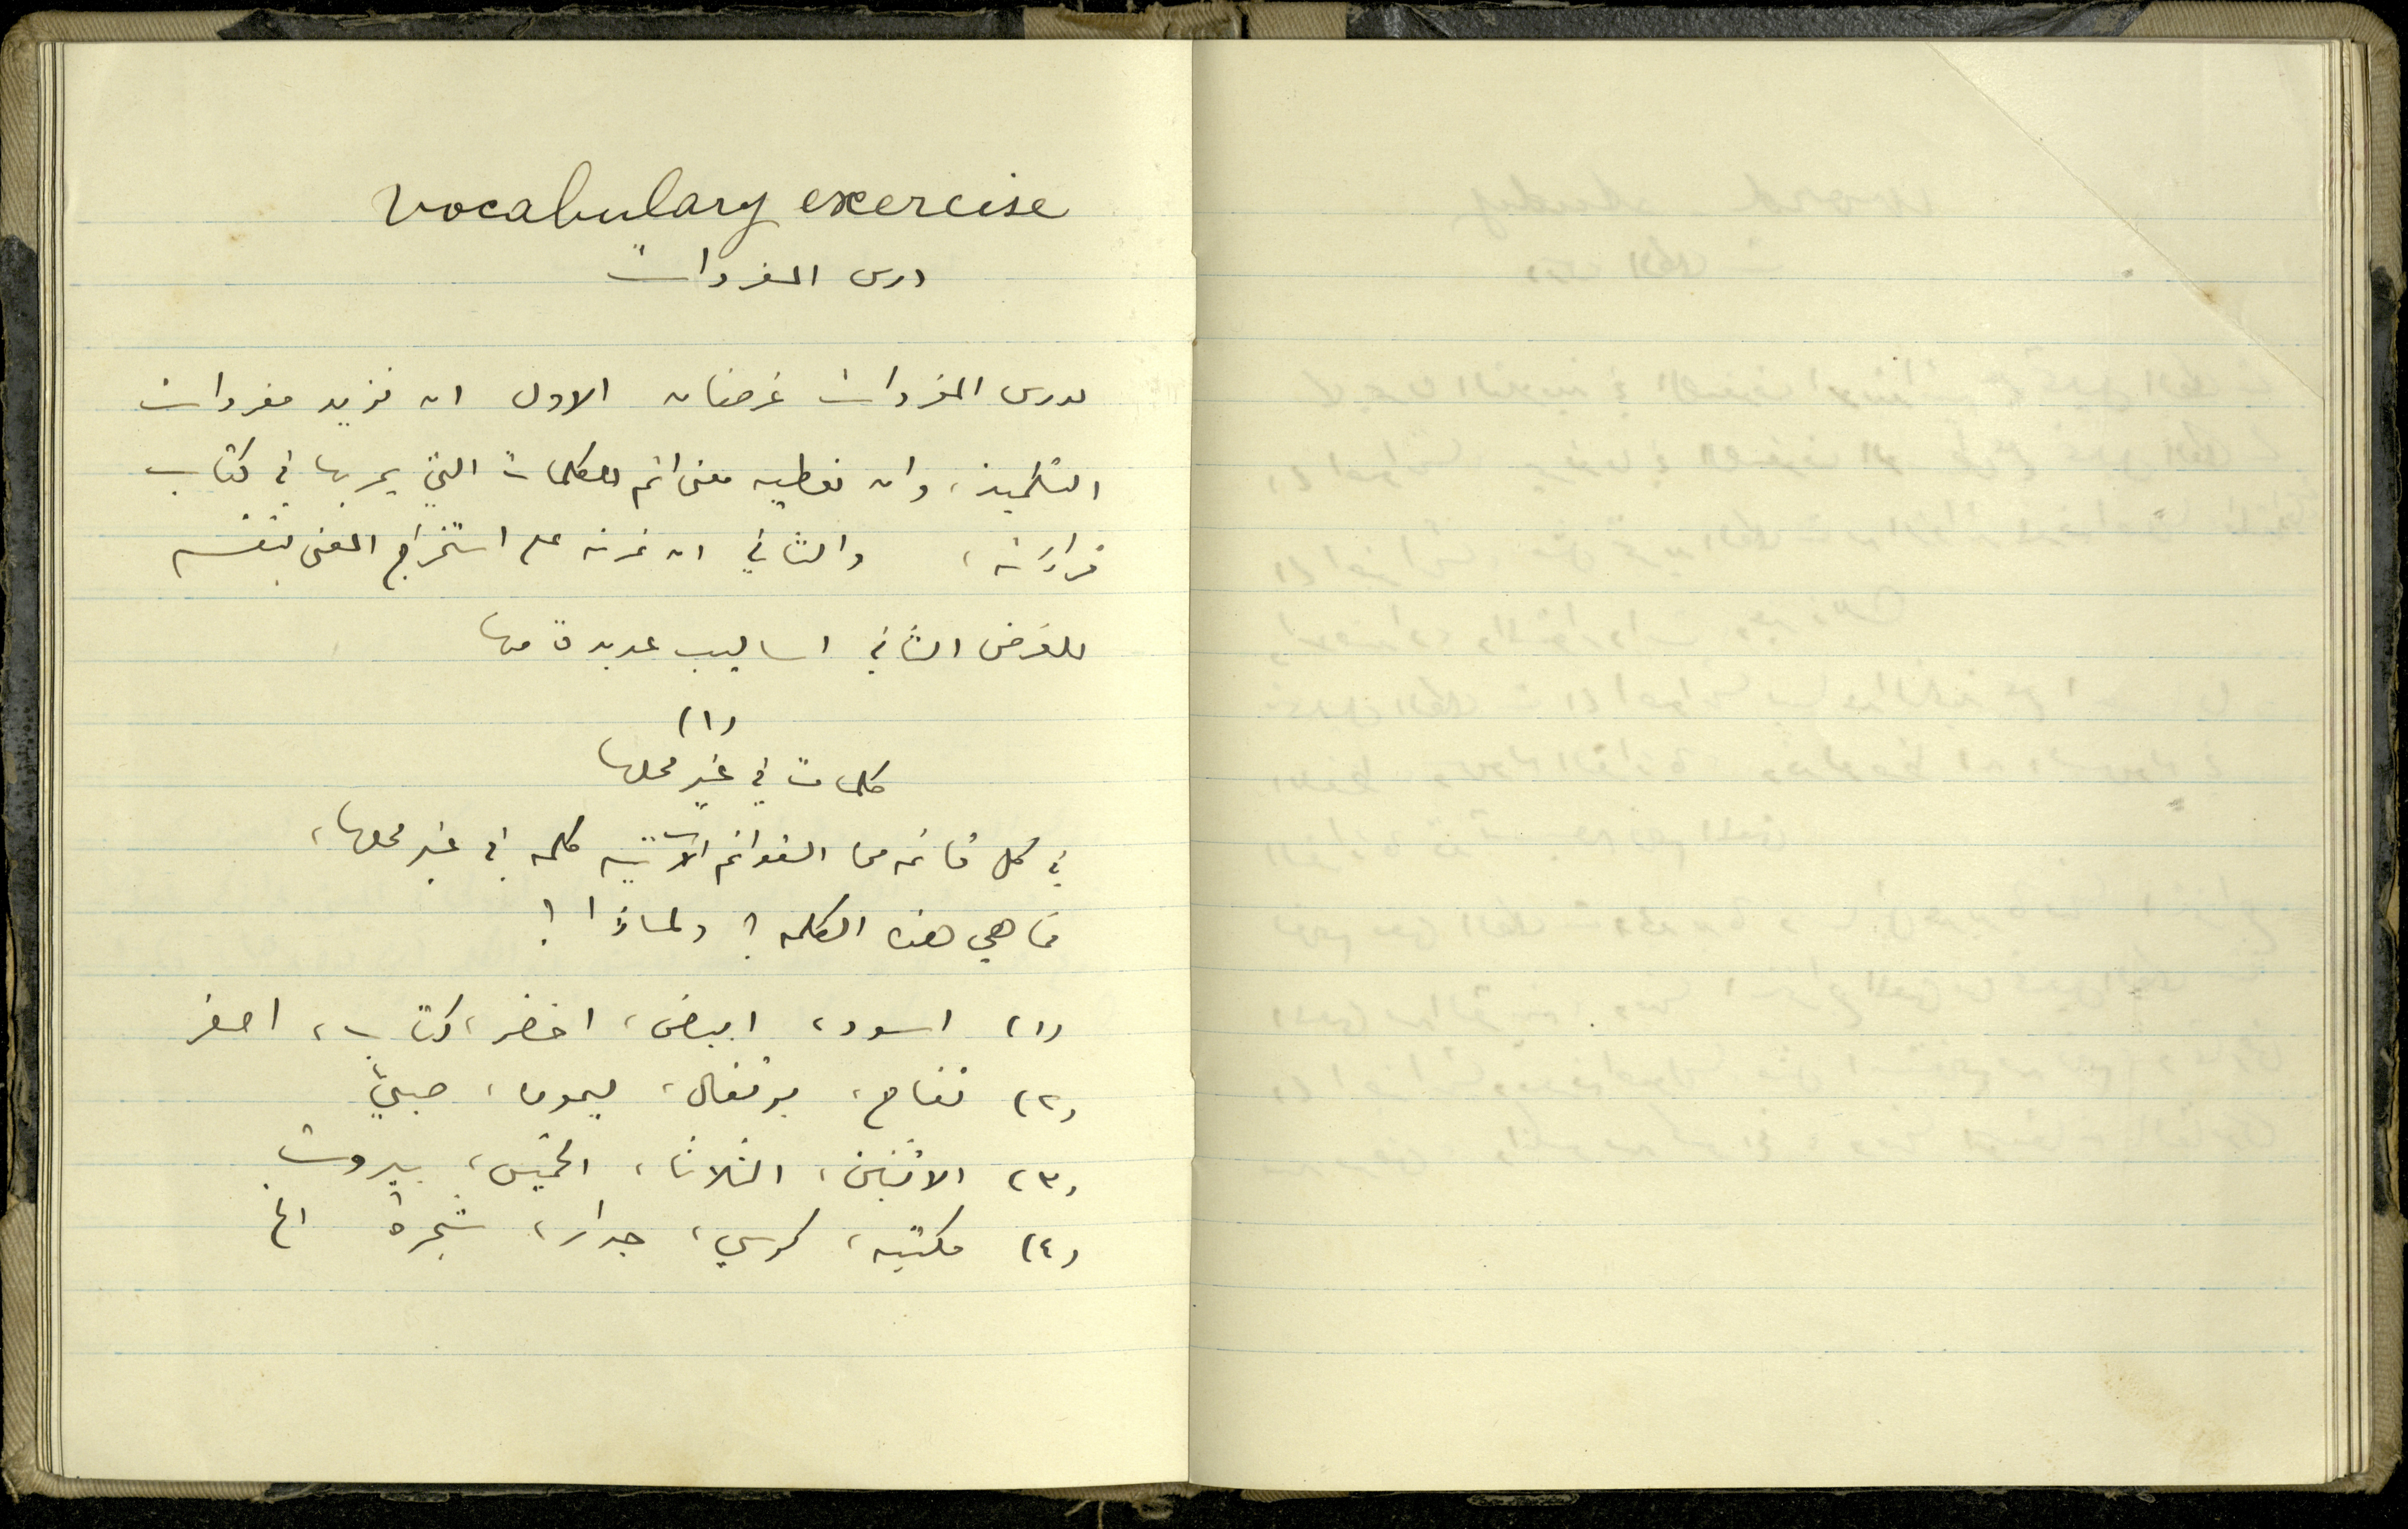 Vocabulary exercise
درس المفردات
لدرس المفردات غرضان الاول ان نزيد مفردات
التلميذ، وان نعطيه معنى اتم للكلمات التي يمر بها في كتاب
قراءته، والثاني ان نمرنه على استخراج المعنى بنفسه
للغرض الثاني اساليب عديدة منها
(١)
كلمات في غير محلها
في كل قائمه من القوائم الآتيه كلمه في غير محلها،
فما هي هذه الكلمه؟ ولماذا؟
(١) اسود، ابيض، اخضر، كتاب، اصفر
(٢) تفاح، برتقال، ليمون، صبي
(٣) الاثنين، الثلاثا، الخميس، بيروت
(٤) مكتبه، كرسي، جدار، شجرة الخ